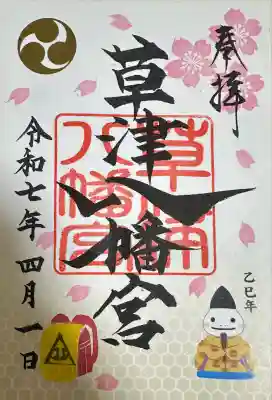 奉拝
草津八幡宮
草津
八幡宮
乙巳年
令和七年 四月一日